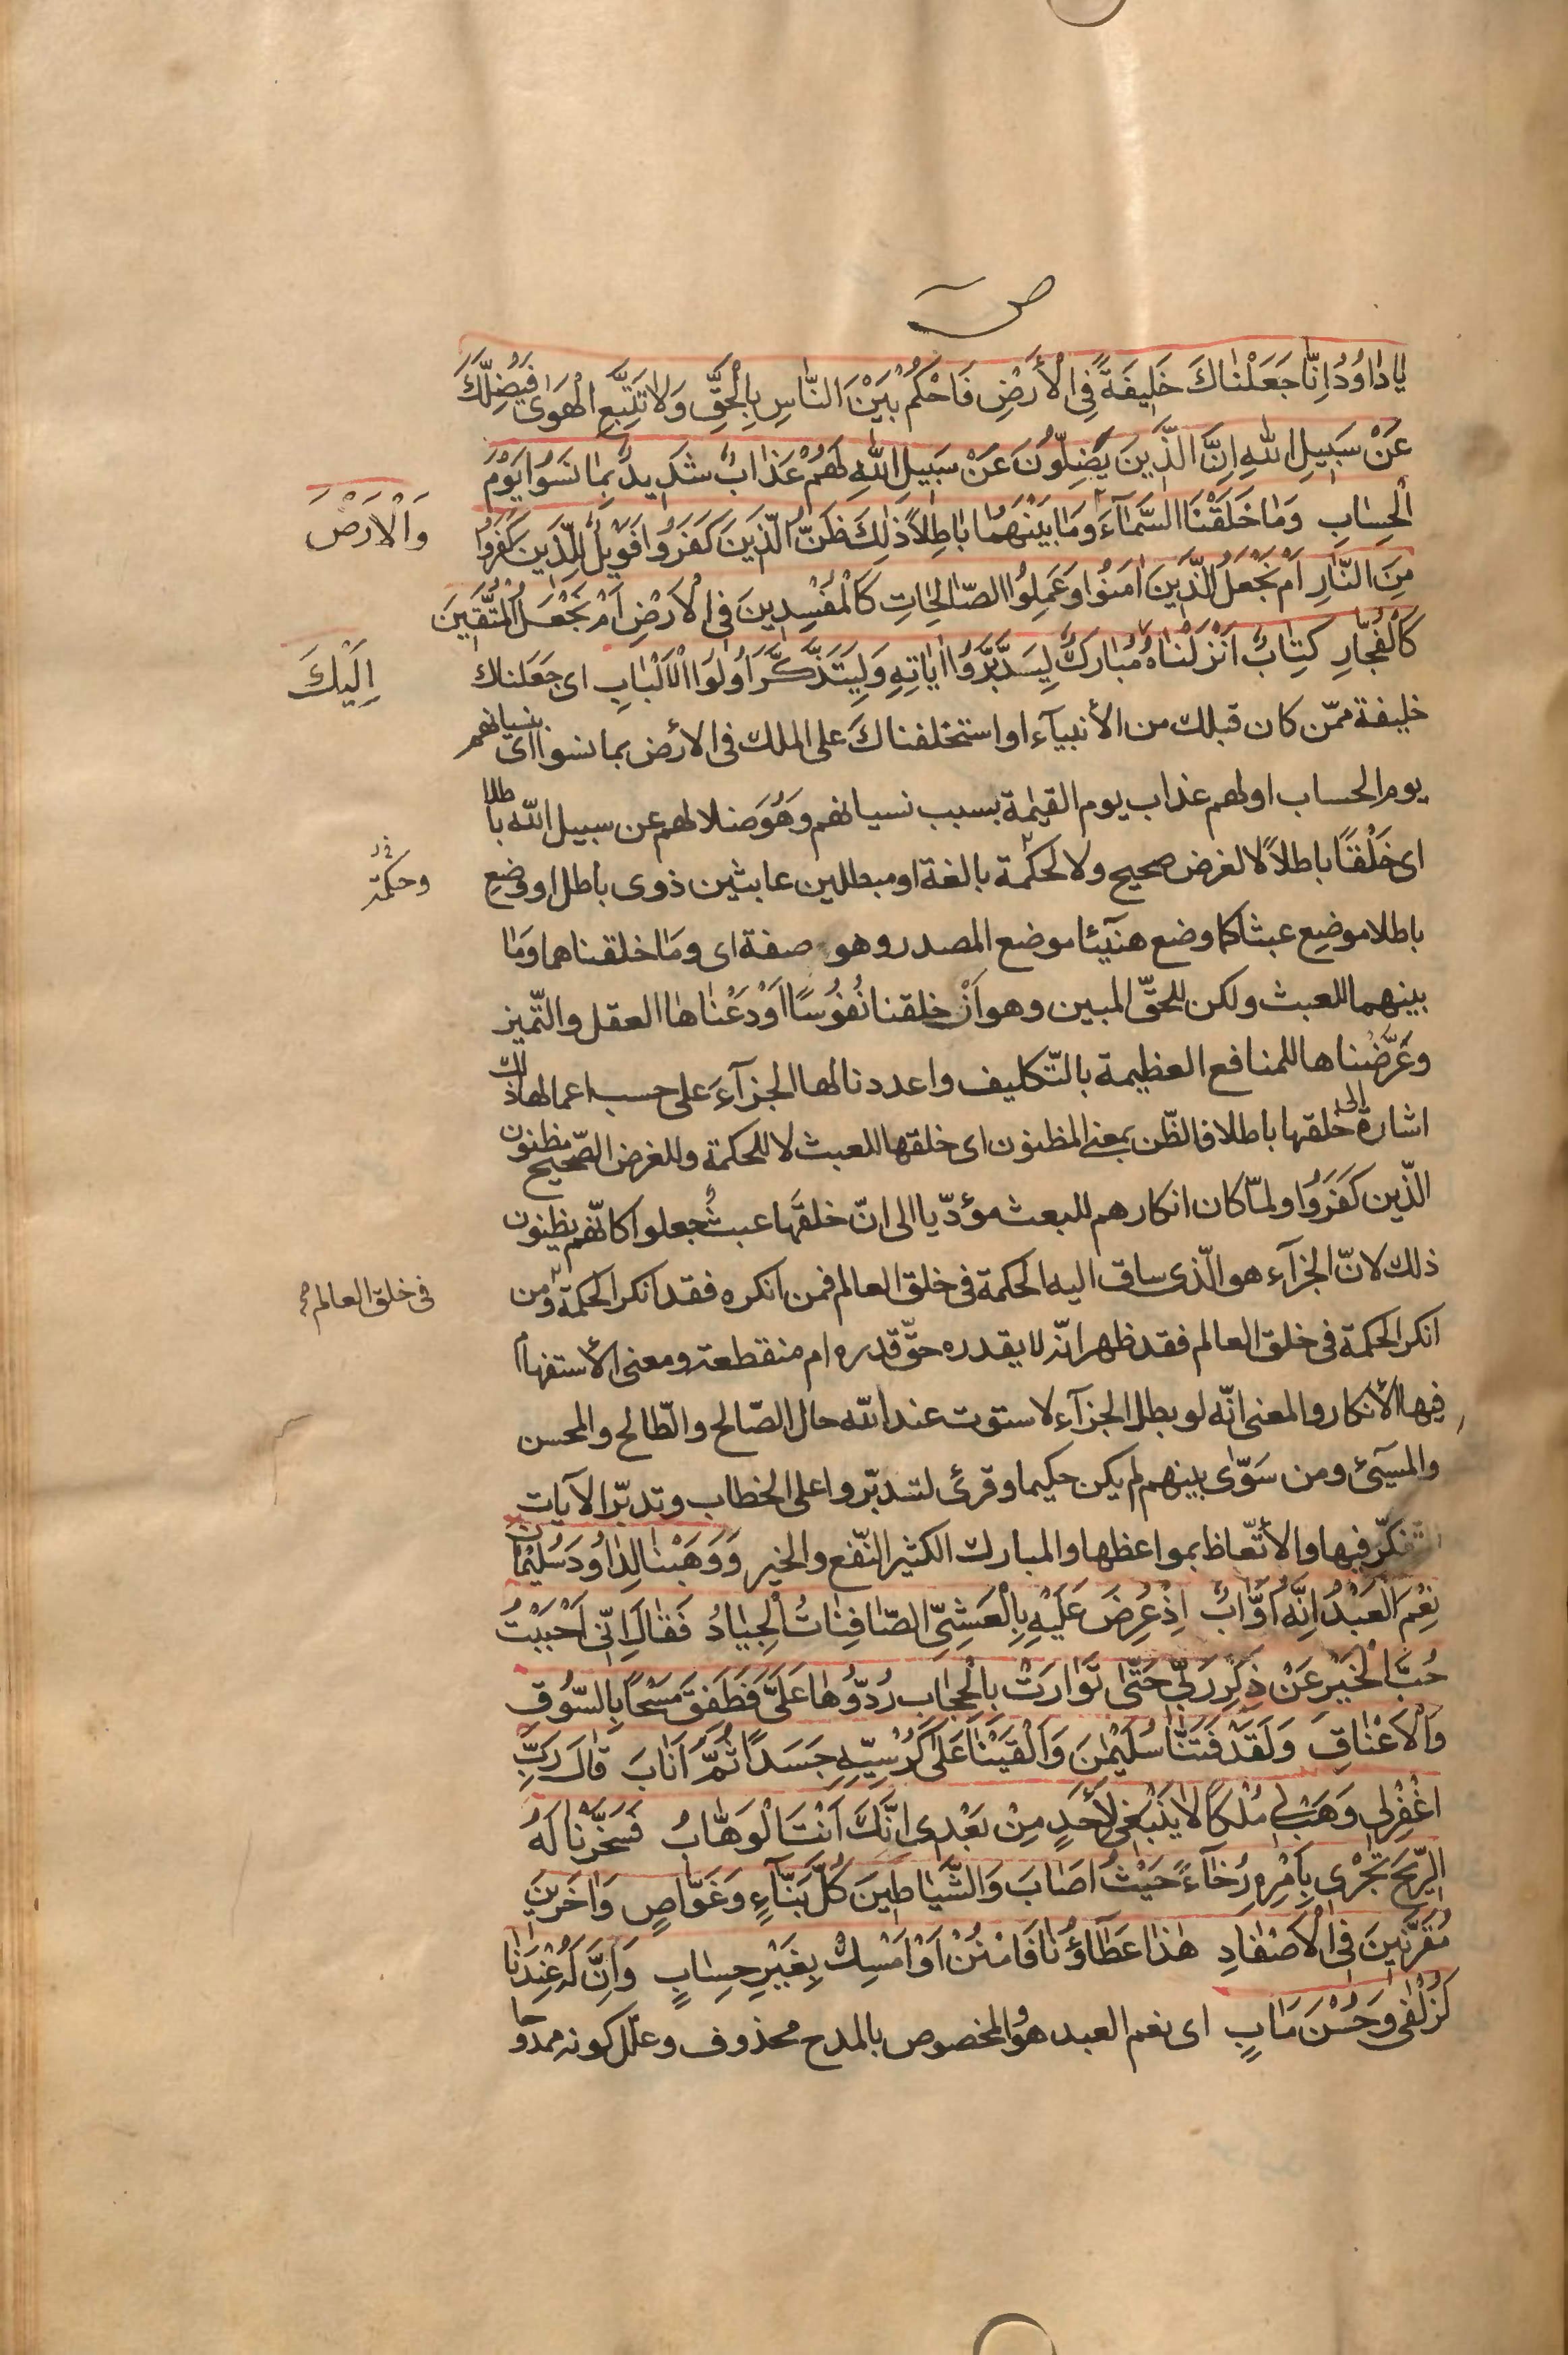 ص
يَا دَاوُدُ اِنَّا جَعَلْنَاكَ خَلِيفَةً فِي الْأَرْضِ فَاحْكُمْ بَيْنَ النَّاسِ بِالْحَقِّ وَلَا تَتَّبِعِ الْهَوَى فَيُضِلَّكَ
عَنْ سَبِيلِ اللهِ اِنَّ الَّذِينَ يَضِلُّونَ عَنْ سَبِيلِ اللهِ لَهُمْ عَذَابٌ شَدِيدٌ بِمَا نَسُوا يَوْمَ
الْحِسَابِ وَمَا خَلَقْنَا السَّمَآءَ وَمَا بَيْنَهُمَا بَاطِلاً ذٰلِكَ ظَنُّ الَّذِينَ كَفَرُوا فَوَيْلٌ لِلَّذِينَ كَفَرُوا
وَالْاَرْضَ
مِنَ النَّارِ اَمْ نَجْعَلُ الَّذِينَ اٰمَنُوا وَعَمِلُوا الصَّالِحَاتِ كَالْمُفْسِدِينَ فِي الْاَرْضِ اَمْ نَجْعَلُ الْمُتَّقِينَ
كَالْفُجَّارِ كِتَابٌ اَنْزَلْنَاهُ مُبَارَكٌ لِيَدَّبَّرُوا اٰيَاتِهِ وَلِيَتَذَكَّرَ اُولُوا الْاَلْبَابِ اى جَعَلناك
اِلَيْكَ
خليفة ممّن كان قبلك من الأنبيآء او استخلفناكَ على الملك فى الارض بما نسوا اى بنسيانهم
يوم الحساب او لهم عذاب يوم القيٰمة بسبب نسيانهم وَهُوَ ضلالهم عن سبيل الله باطلا
اى خَلْقًا باطلاً لا لغرض صحيح ولا لحكمة بالغة او مبطلين عابثين ذوى باطل او وضع
وحكمة
باطلا موضع عبثا كما وضع هنيئا موضع المصدر وهو صفة اى وما خلقناهما وما
بينهما للعبث ولكن للحقّ المبين وهو اَنْ خلقنا نُفُوسًا اَوْدَعْنَاهَا العقل والتّميز
وعَرَّضْناها للمنافع العظيمة بالتّكليف واعددنا لها الجزآءَ على حسب اعمالها ذلك
اشارة الى خلقها باطلا فالظّن بمعنى المظنون اى خلقها للعبث لا للحكمة وللغرض الصّحيح مظنون
الّذين كَفَرُوا ولمّا كان انكارهم للبعث مؤدّيا الى انّ خلقَها عبثٌ جعلوا كانّهم يظنون
ذلك لانّ الجزآء هو الّذى ساق اليه الحكمة فى خلق العالم فمن انكره فقد انكر الحكمة ومن
فى خلق العالم صح
انكر الحكمة فى خلق العالم فقد ظهر انّه لا يقدره حقّ قدره ام منقطعة ومعنى الأستفهام
فيها الأنكار والمعنى انّه لو بطل الجزآء لاستوت عند الله حال الصّالح والطّالح والمحسن
والمسيئ ومن سَوّى بينهم لم يكن حكيما وقرئ لتدبّروا على الخطاب وتدبّر الآيات
التّفكّر فيها والأتّعاظ بمواعظها والمبارك الكثير النّفع والخير وَوَهَبْنَا لِدَاوُدَ سُلَيْمٰانَ
نِعْمَ الْعَبْدُ اِنَّهُ اَوَّابٌ اِذْ عُرِضَ عَلَيْهِ بِالْعَشِيِّ الصَّافِنَاتُ الْجِيَادُ فَقَالَ اِنِّى اَحْبَبْتُ
حُبَّ الْخَيْرِ عَنْ ذِكْرِ رَبِّى حَتّٰى تَوَارَتْ بِالْحِجَابِ رُدُّوهَا عَلَىَّ فَطَفِقَ مَسْحًا بِالسُّوقِ
وَالْاَعْنَاقِ وَلَقَدْ فَتَنَّا سُلَيْمٰنَ وَاَلْقَيْنَا عَلٰى كُرْسِيِّهِ جَسَدًا ثُمَّ اَنَابَ قَالَ رَبِّ
اغْفِرْلى وَهَبْ لِى مُلْكًا لَا يَنْبَغِى لِاَحَدٍ مِنْ بَعْدِى اِنَّكَ اَنْتَ الْوَهَّابُ فَسَخَّرْنَا لَهُ
الرِّيحَ تَجْرِى بِاَمْرِهِ رُخَآءً حَيْثُ اَصَابَ وَالشَّيَاطِينَ كُلَّ بَنَّآءٍ وَغَوَّاصٍ وَاٰخَرِينَ
مُقَرَّنِينَ فِى الْاَصْفَادِ هٰذَا عَطَآؤُنَا فَامْنُنْ اَوْ اَمْسِكْ بِغَيْرِ حِسَابٍ وَاِنَّ لَهُ عِنْدَنَا
لَزُلْفٰى وَحُسْنَ مَاٰبٍ اى نعم العبد هو والمخصوص بالمدح محذوف وعلّل كونه ممدوحا